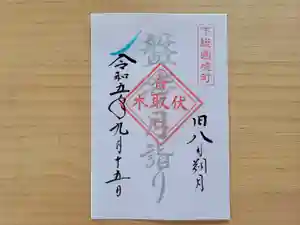 下総国境町
旧八月朔月
月詣り
伏木
香取
令和五年九月十五日